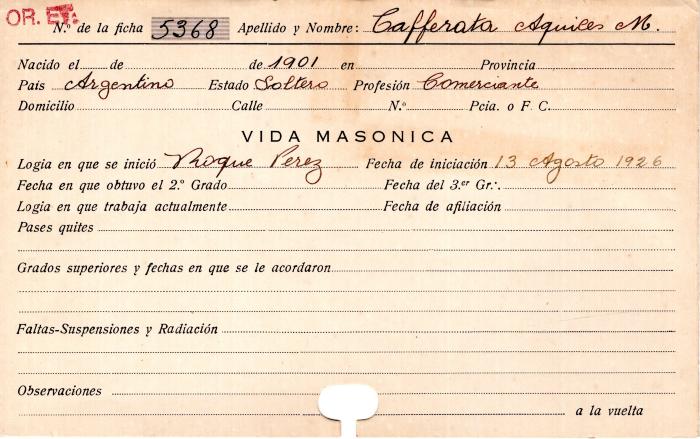 OR. ET.
N.º de la ficha 5368 Apellido y Nombre: Cafferata Aquiles M.
Nacido el de de 1901 en Provincia
País Argentino Estado Soltero Profesión Comerciante
Domicilio Calle N.º Pcia. o F. C.
VIDA MASONICA
Logia en que se inició Roque Perez Fecha de iniciación 13 Agosto 1926
Fecha en que obtuvo el 2.º Grado Fecha del 3.er Gr∴
Logia en que trabaja actualmente Fecha de afiliación
Pases quites
Grados superiores y fechas en que se le acordaron
Faltas-Suspensiones y Radiación
Observaciones
a la vuelta